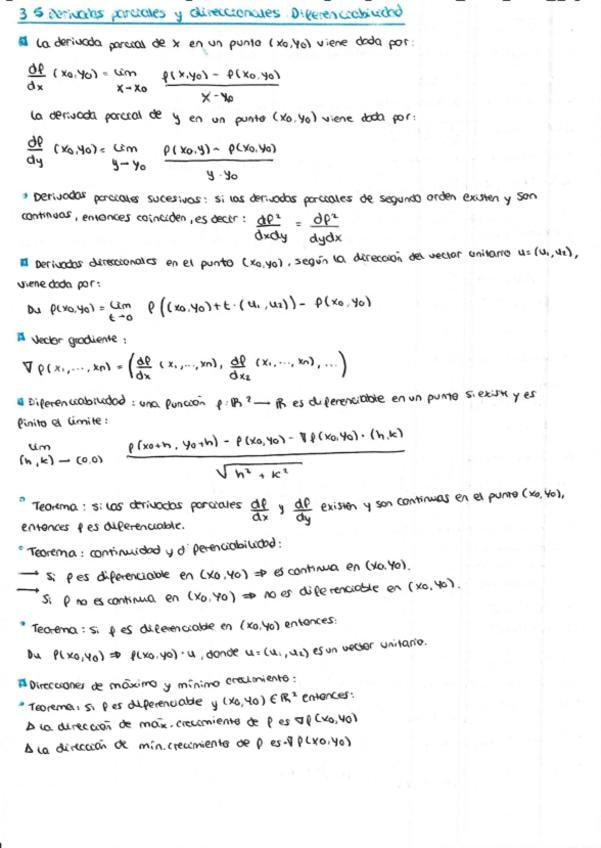 3.5 Derivadas parciales y direccionales. Diferenciabilidad
La derivada parcial de x en un punto (x0,y0) viene dada por:
df/dx (x0,y0) = lim x→x0 f(x,y0) - f(x0,y0) / x-y0
La derivada parcial de y en un punto (x0,y0) viene dada por:
df/dy (x0,y0) = lim y→y0 f(x0,y) - f(x0,y0) / y-y0
• Derivadas parciales sucesivas: si las derivadas parciales de segundo orden existen y son
continuas, entonces coinciden, es decir: df²/dxdy = df²/dydx
Derivadas direccionales en el punto (x0,y0), según la dirección del vector unitario u=(u1,u2),
viene dada por:
Du f(x0,y0) = lim t→0 f((x0,y0)+t·(u1,u2)) - f(x0,y0)
Vector gradiente:
∇f(x1,...,xn) = (df/dx (x1,...,xn), df/dx2 (x1,...,xn),...)
Diferenciabilidad: una función f:R²→R es diferenciable en un punto si existe y es
finito el límite:
lim (h,k)→(0,0) f(x0+h, y0+h) - f(x0,y0) - ∇f(x0,y0)·(h,k) / √h²+k²
• Teorema: si las derivadas parciales df/dx y df/dy existen y son continuas en el punto (x0,y0),
entonces f es diferenciable.
• Teorema: continuidad y diferenciabilidad:
→ Si f es diferenciable en (x0,y0) ⇒ es continua en (x0,y0).
→ Si f no es continua en (x0,y0) ⇒ no es diferenciable en (x0,y0).
• Teorema: si f es diferenciable en (x0,y0) entonces:
Du f(x0,y0) ⇒ f(x0,y0)·u, donde u=(u1,u2) es un vector unitario.
Direcciones de máximo y mínimo crecimiento:
• Teorema: si f es diferenciable y (x0,y0) ∈ R² entonces:
Δ La dirección de máx. crecimiento de f es ∇f(x0,y0)
Δ La dirección de min. crecimiento de f es -∇f(x0,y0)